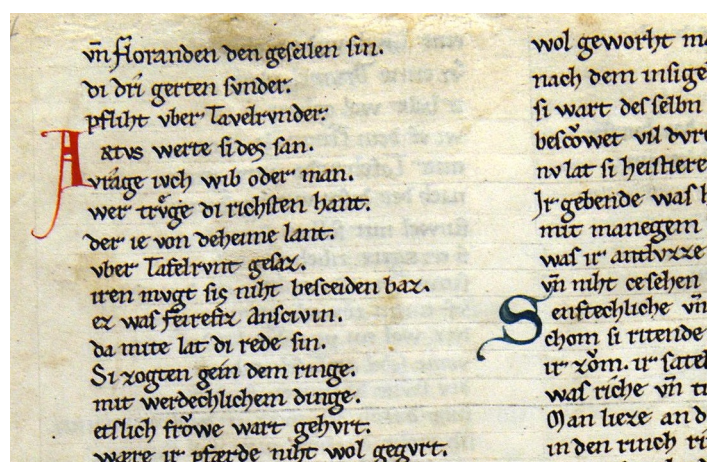 vn̄ floranden den gesellen sin.
di dri gerten svnder.
pfliht vber Tavelrvnder.
Artvs werte si des san.
vrage ivch wib oder man.
wer trv̊ge di richsten hant.
der ie von deheime lant.
vber Tafelrvnt gesaz.
iren mvgt sis niht besceiden baz.
ez was feirefiz anscivin.
da mite lat di rede sin.
Si zogten gein dem ringe.
mit werdechlichem dinge.
etslich frŏwe wart gehvrt.
wære ir pfærde niht wol gegvrt.
wol geworht
nach dem insige
si wart des selbn
bescŏwet vil
nv lat si heistiere
Ir gebende was
mit manegem
was ir antlvzze
vn̄ niht ce sehen
Senftechliche vn̄
chom si ritende
ir zŏm. ir satel
was riche vn̄
Man lieze an d
in den rinch ri